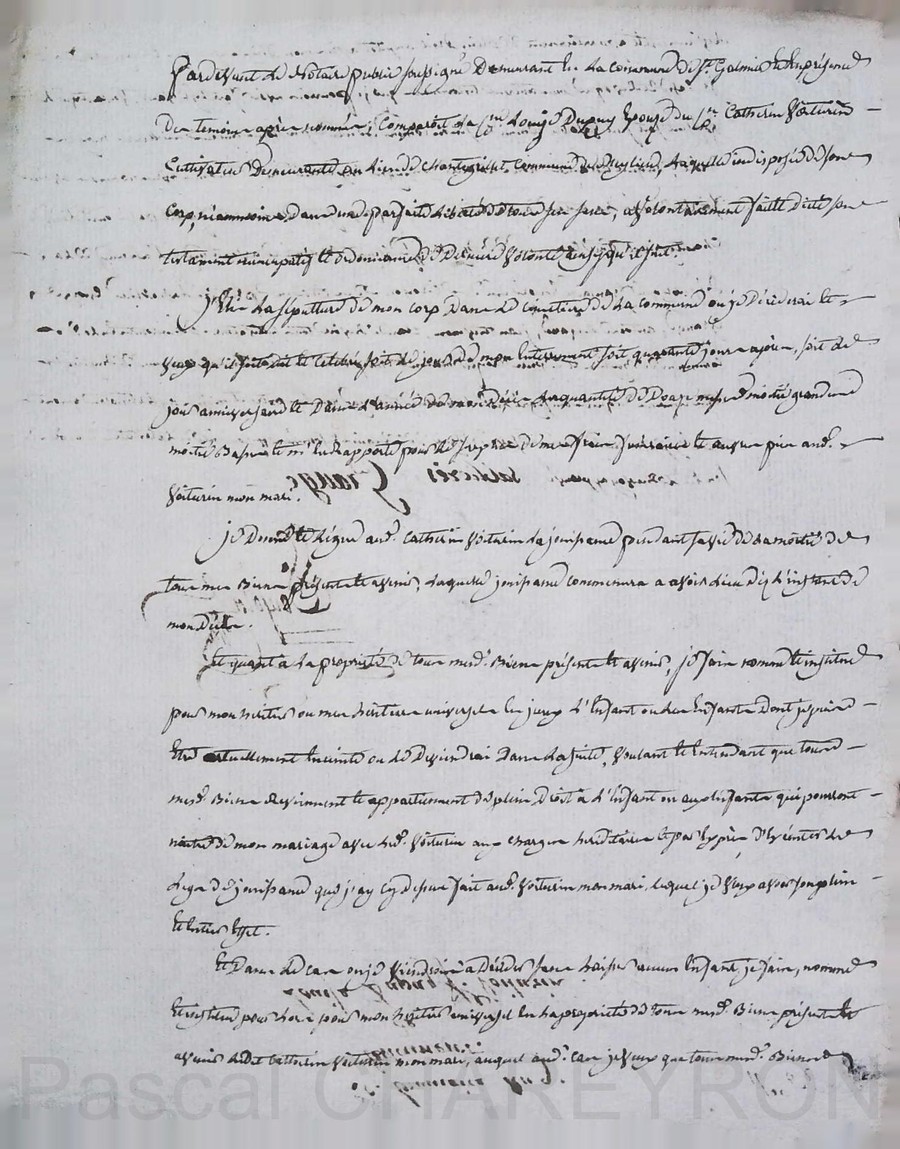 Pardevant le Notaire public soussigné Demeurant en la commune de St. Galmier et En présence
Des temoins après nommés, Comparoit la Cne Louise Dupuy Epouse du Cn Catherin Voiturin
Cultivateur Demeurante au lieu de Commune de laquelle indisposée de son
Corp, néanmoins dans une parfaite liberté de tous ses sens, a volontairement fait et dicté son
testament nuncupatif et ordonnance de Derniere Volonté ainsi qu'il suit.
J'Elis la sépulture de mon corp dans le cimetière de la commune où je décéderai et
veux qu'il soit dit et célébré soit le jour de mon Enterrement soit quarante jours après, soit le
jour anniversaire et Dans l'année de mon Décès la quantité de Douze messes moitié grandes
moitié Basses et m'en Rapporte pour le surplus de mes frais funéraires et aud.
Voiturin mon mari.
je Donne et Légue aud. Catherin Voiturin la jouissance pendant sa vie de la moitié de
tous mes Biens présents et avenir, laquelle jouissance commencera a avoir lieu dès l'instant de
mon Décès.
Et quant à la propriété de tous mesd. Biens présents et avenir, je fais nomme et institue
pour mon héritier ou mes héritiers universels les jeux d'Enfant ou des Enfants Dont je puis
Etre actuellement Enceinte ou le Deviendrai Dans la suite, Voulant et Entendant que tous
mesd. Biens reviennent et appartiennent de plein Droit à l'Enfant ou aux Enfants qui pourront
naitre de mon mariage avec led. Voiturin aux charges héréditaires et par Exprès d'Exécuter le
Legs de jouissance que j'ay cy dessus fait aud. Voiturin mon mari, lequel je Veux avoir son plein
Et entier Effet.
Et Dans le cas où je Viendrois a Décéder sans laisser aucun Enfant je fais, nomme
Et institue pour lors pour mon héritier universel En la propriété de tous mesd. Biens présents Et
avenir ledit Catherin Voiturin mon mari, auquel aud. cas je Veux que tous mesd. Biens
Pascal CHAREYRON